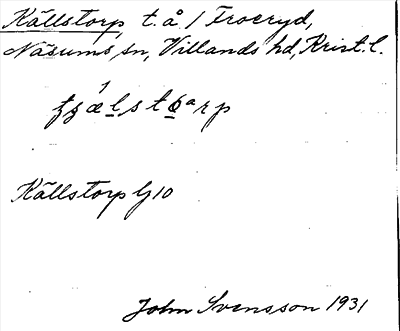 Källstorp, t. å. / Froeryd,
Näsums sn, Villands hd, Krist. l.
Källstorp lj 10
John Svensson 1931